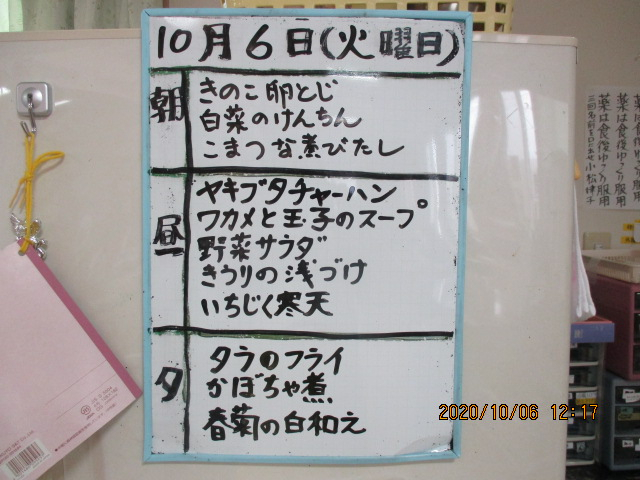 10月6日(火曜日)
朝
きのこ卵とじ
白菜のけんちん
こまつな煮びたし
昼
ヤキブタチャーハン
ワカメと玉子のスープ
野菜サラダ
きうりの浅づけ
いちじく寒天
夕
タラのフライ
かぼちゃ煮
春菊の白和え
薬は食後ゆっくり服用
2020/10/06 12:17